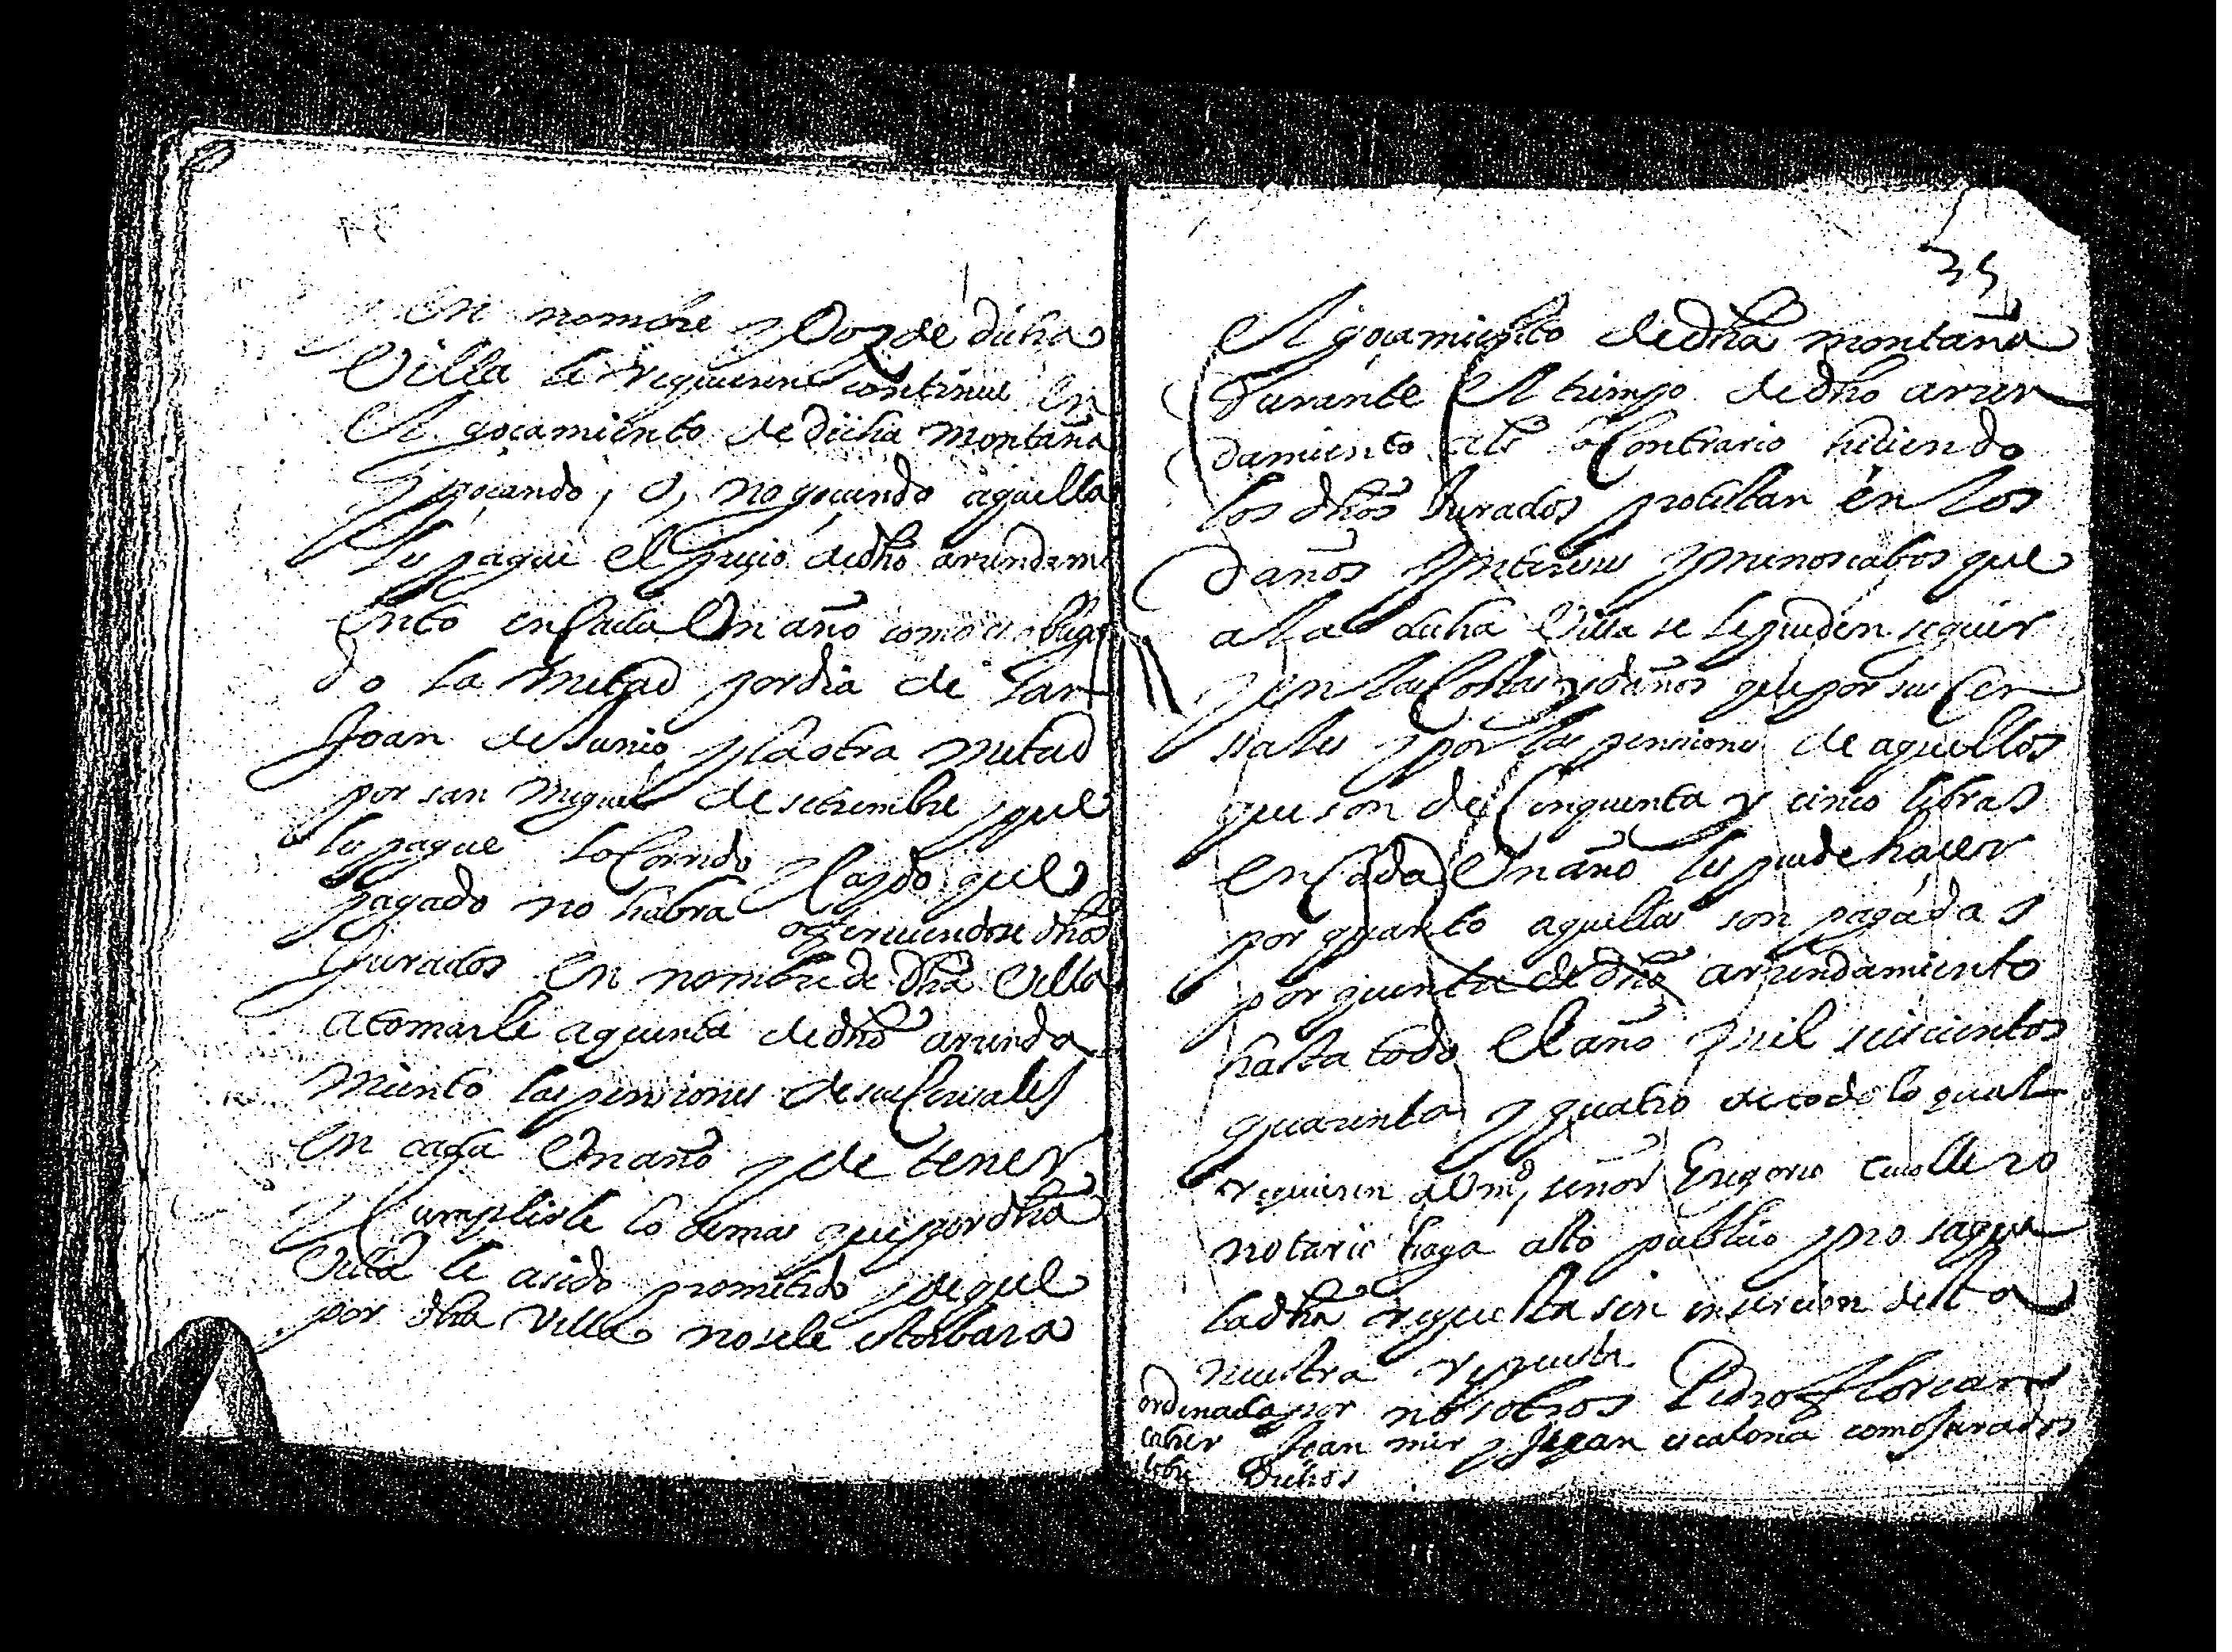 en nombre y Voz de dicha
Villa le requieren continue en
el goçamiento de dicha montaña
y goçando, o, no goçando aquella
les pague el preçio de dho arrendami
ento en cada Un año como es obliga
do la mitad por dia de San
Joan de Junio y la otra mitad
por san Miguel de setiembre y que
les pague lo Corrido y caydo que
pagado no habra ofreciendose dhos
Jurados en nombre de dha Villa
a tomarle a quenta de dho arrenda
miento las pensiones de sus Censales
en cada Un año y de tener
y Cumplirle lo demas que por dha
Villa le a sido prometido y de que
por dha Villa no se le estorbara
35
el goçamiento de dha montaña
Durante el tiempo de dho arren
damiento lo Contrario haciendo
los dhos Jurados protestan en los
Daños Intereses y menoscabos que
a la dicha Villa se le pueden seguir
y en las Costas y daños que por sus Cen
sales y por las pensiones de aquellos
que son de Cinquenta y cinco libras
en Cada Un año les puede haçer
por quanto aquellas son pagadas
por quenta de dho arrendamiento
hasta todo el año mil seiscientos
quarenta y quatro de todo lo qual
requieren a Vmd, señor Gregorio
notario haga acto publico y no saque
la dha requesta sin insercion desta
nuestra respuesta
ordinada por nosotros Pedro Florian
Joan mir y Joan escalona como Jurados
sobre Dichos